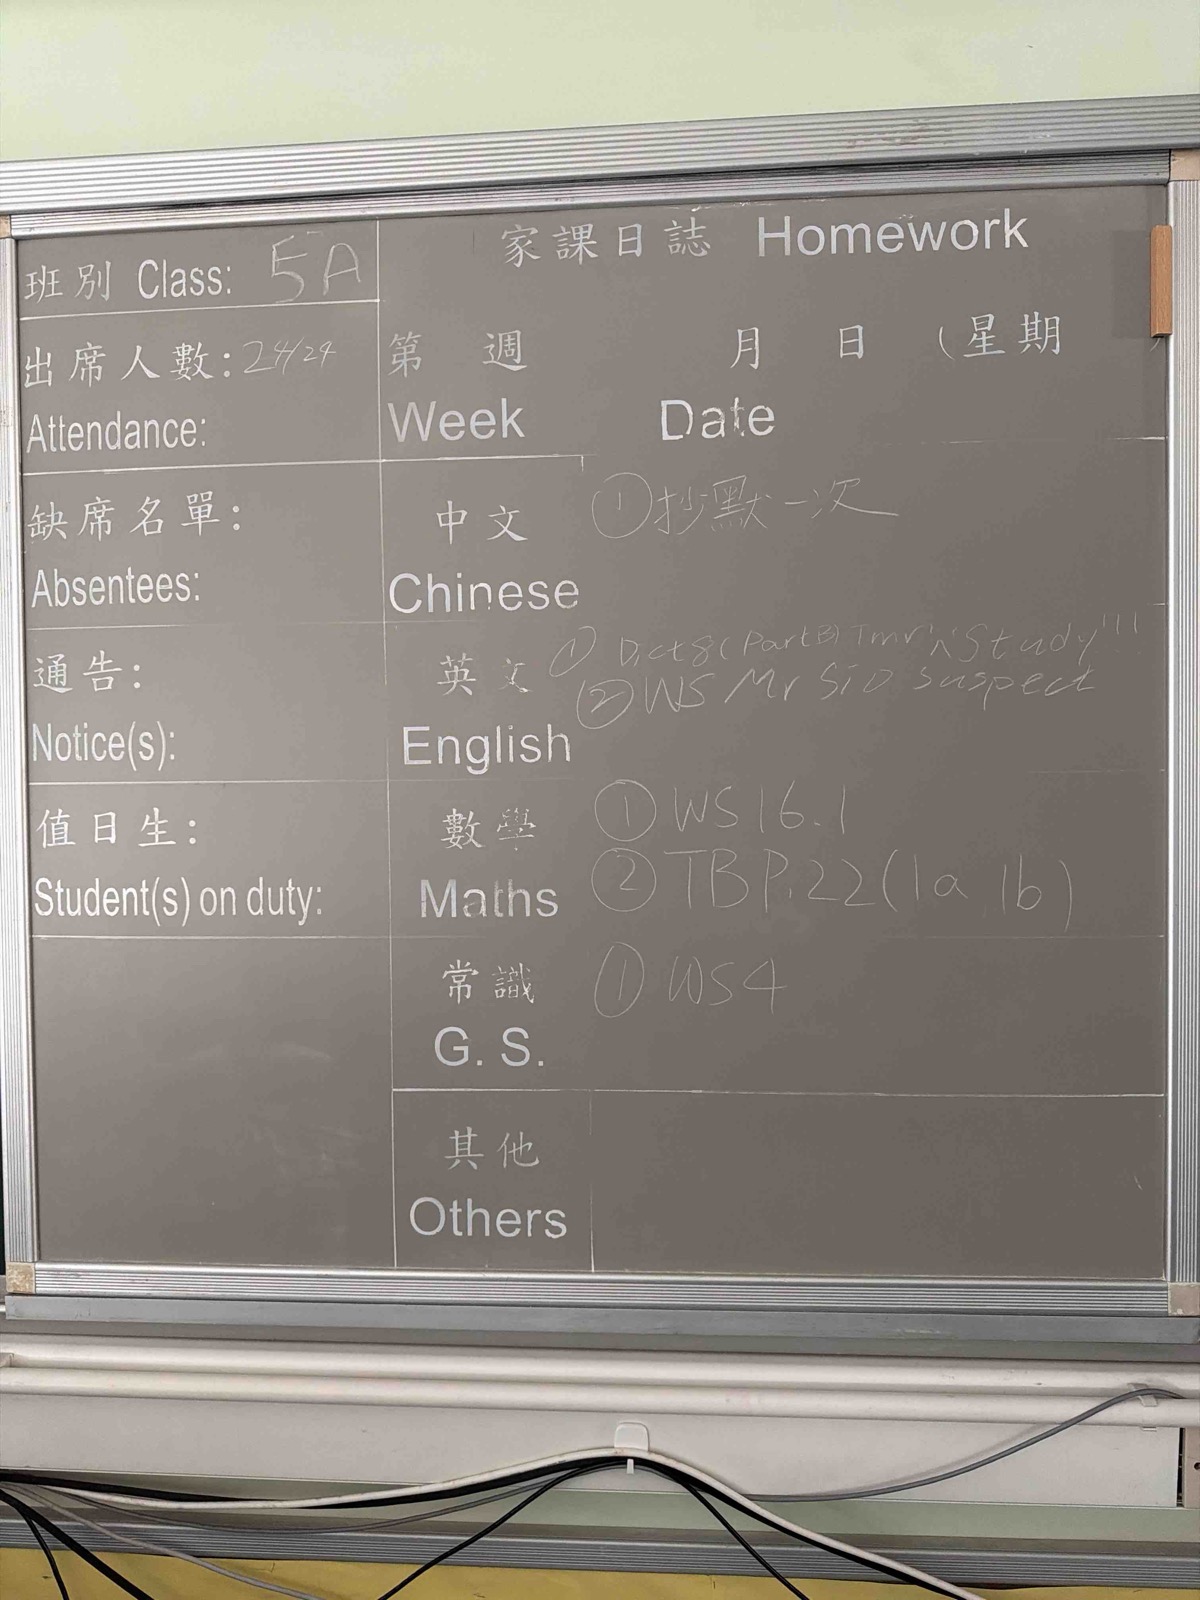 班別 Class: 5A
出席人數: 24/24
Attendance:
缺席名單:
Absentees:
通告:
Notice(s):
值日生:
Student(s) on duty:
家課日誌 Homework
第 週 月 日 (星期 )
Week Date
中文 ①抄默一次
Chinese
英文 ① Dict 8 (Part B) Tmr Study!!!
② WS Mr Sio suspect
English
數學 ① WS16.1
② TB P.22 (1a 1b)
Maths
常識 ① WS4
G. S.
其他
Others